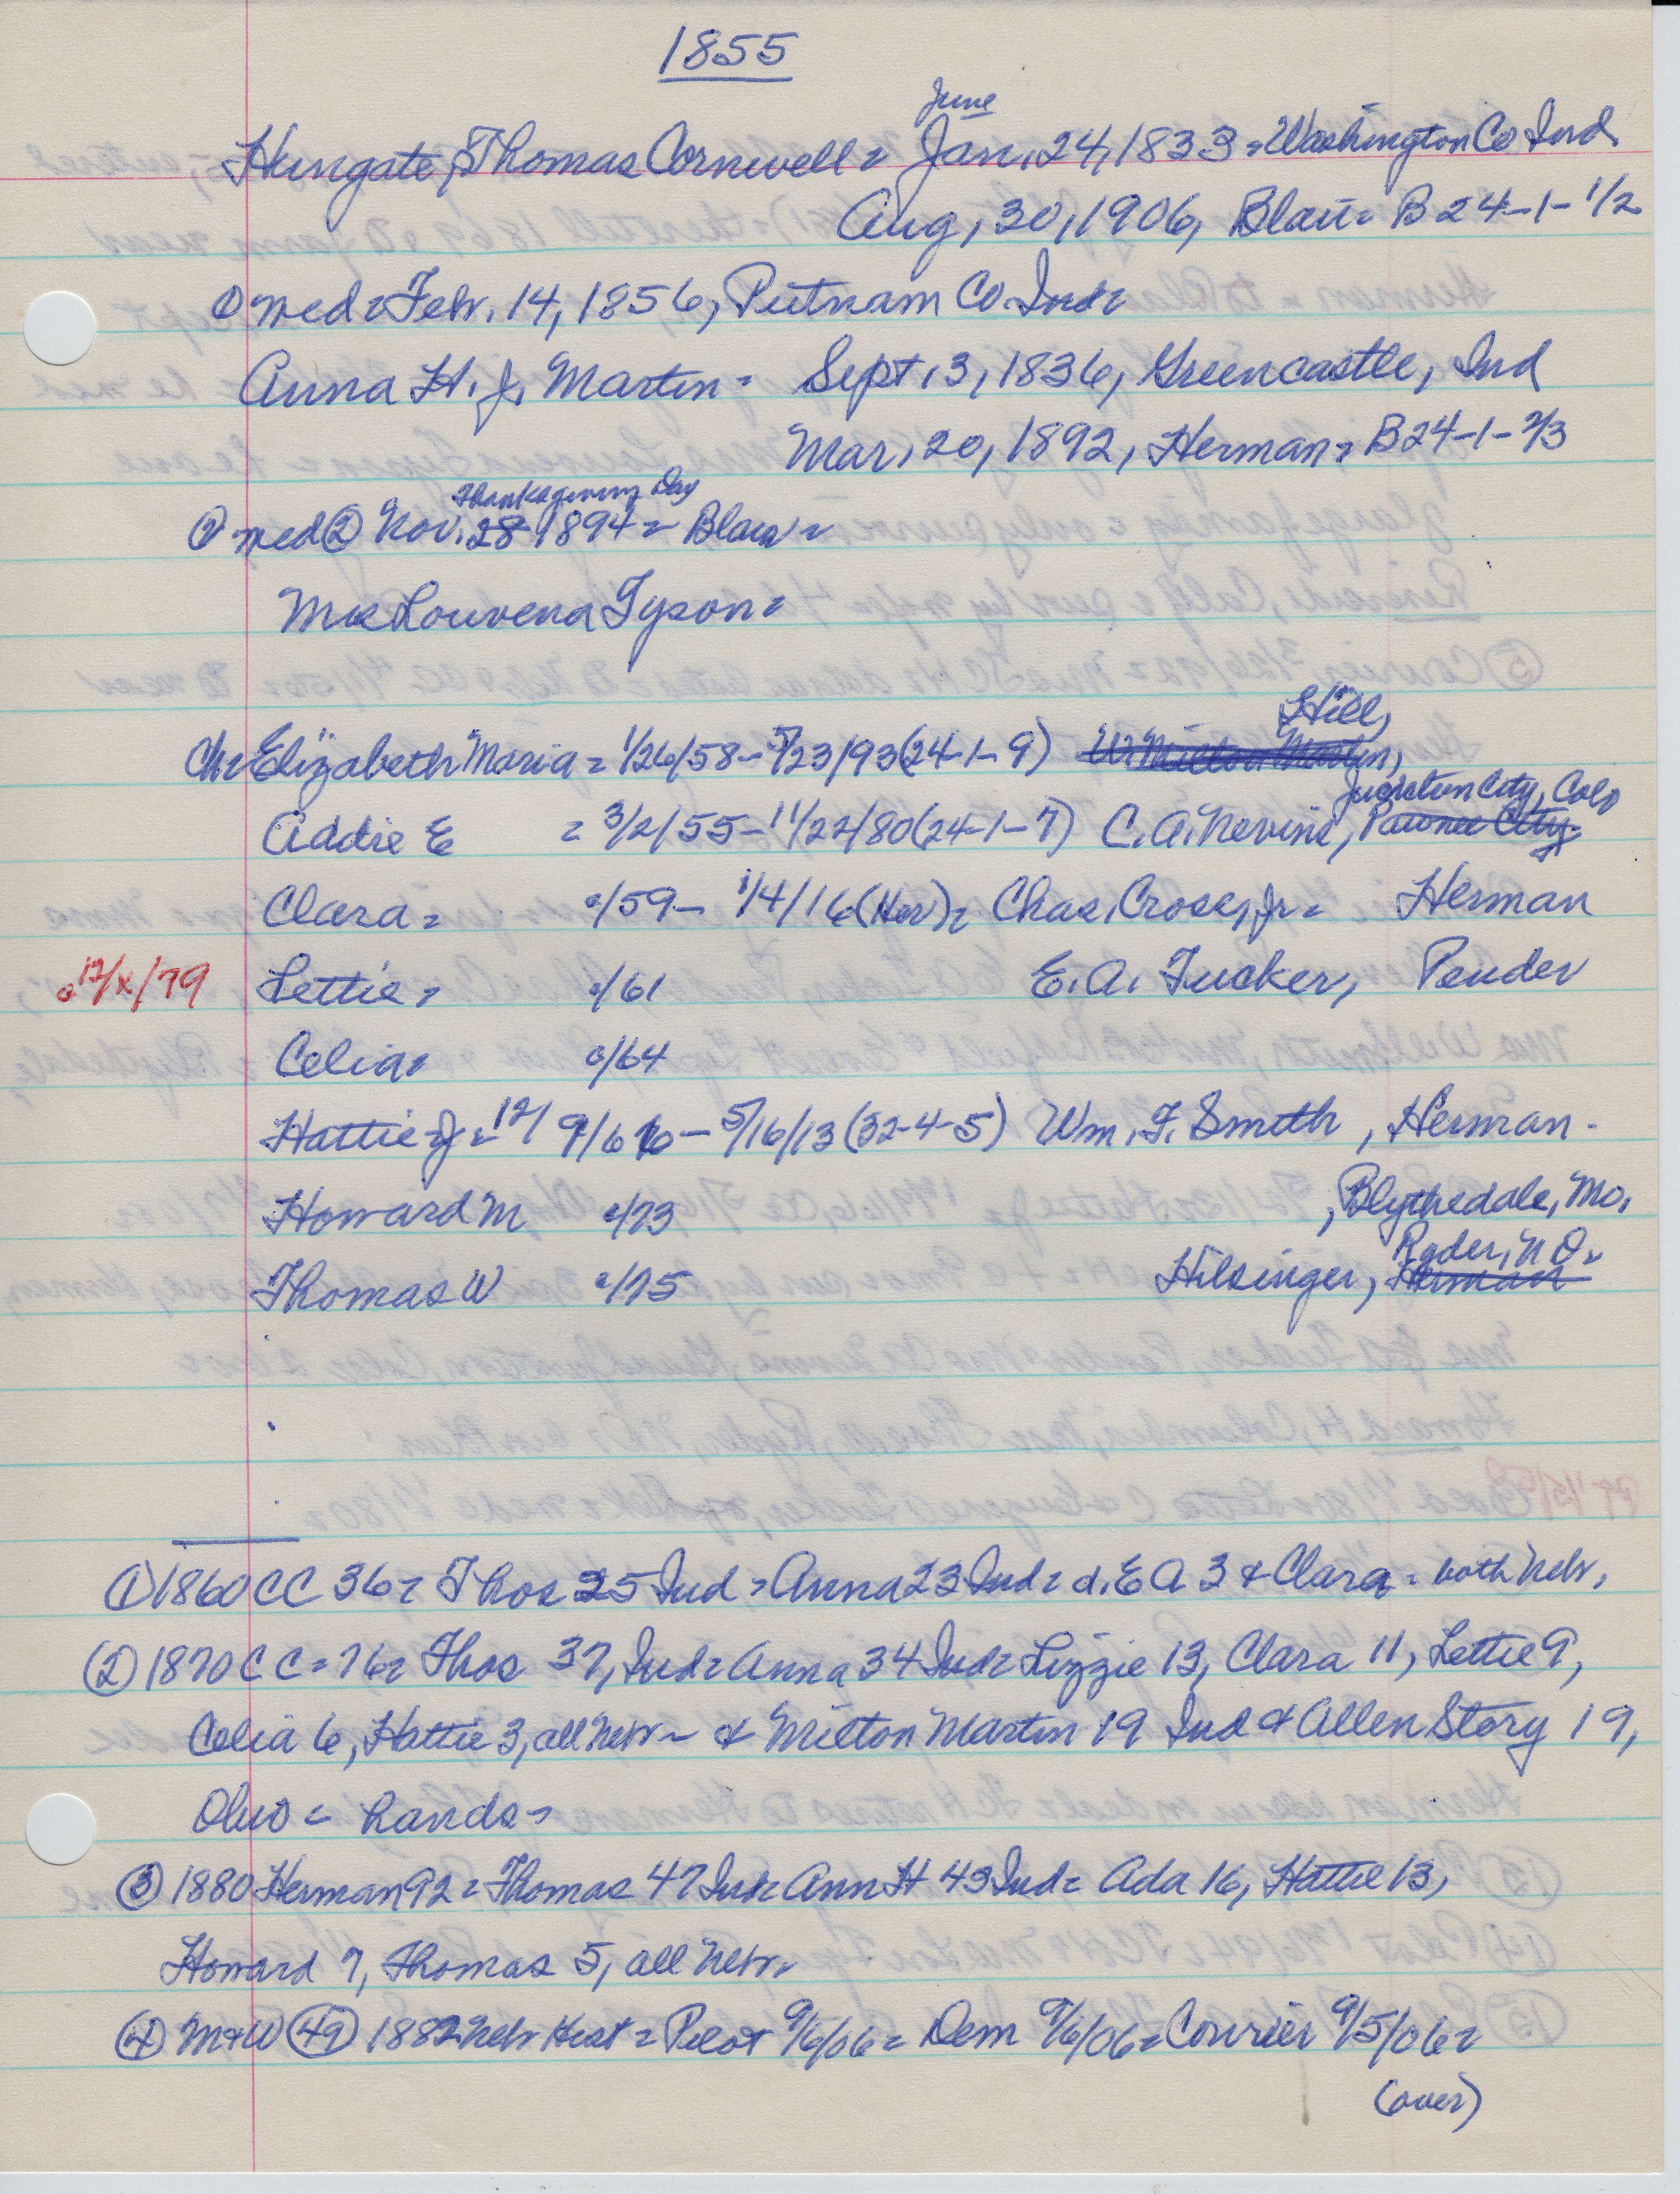 1855
June
Hungate, Thomas Cornwell = Jan. 24, 1833 = Washington Co Ind
Aug, 30, 1906, Blair = B 24-1-1/2
① med = Febr. 14, 1856, Putnam Co. Ind =
Anna H. J. Martin = Sept. 3, 1836, Greencastle, Ind
Mar. 20, 1892, Herman = B24-1-2/3
Thanksgiving Day
② med ② Nov. 28 1894 = Blair =
Mrs Louvena Tyson =
Hill,
Ch = Elizabeth Maria = 1/26/58 - 5/23/93 (24-1-9) W Milton Martin,
Junction City, Colo
Addie E = 3/2/55 - 11/22/80 (24-1-7) C. A. Nevins, Pawnee City
Clara = c/59 - 1/4/16 (Her) = Chas. Cross, Jr = Herman
c 12/x/79 Lettie = c/61 E. A. Tucker, Pender
Celia = c/64
Hattie J = 12/9/66 - 5/16/13 (32-4-5) Wm. F. Smith, Herman.
Howard M c/73 , Blythedale, Mo,
Ryder, N D.
Thomas W c/75 Hilsinger, Herman
① 1860 CC 36 = Thos 25 Ind = Anna 23 Ind = d. E A 3 & Clara = both Nebr,
(2) 1870 C C = 76 = Thos 37, Ind = Anna 34 Ind = Lizzie 13, Clara 11, Lettie 9,
Celia 6, Hattie 3, all Nebr - & Milton Martin 19 Ind & Allen Story 19,
Ohio = hands =
③ 1880 Herman 92 = Thomas 47 Ind = Ann H 43 Ind = Ada 16, Hattie 13,
Howard 7, Thomas 5, all Nebr.
④ M+W (49) 1882 Nebr Hist = Pilot 9/6/06 = Dem 9/6/06 = Courier 9/5/06 =
(over)